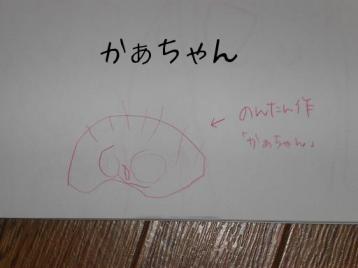 かぁちゃん
のんたん作
「かぁちゃん」